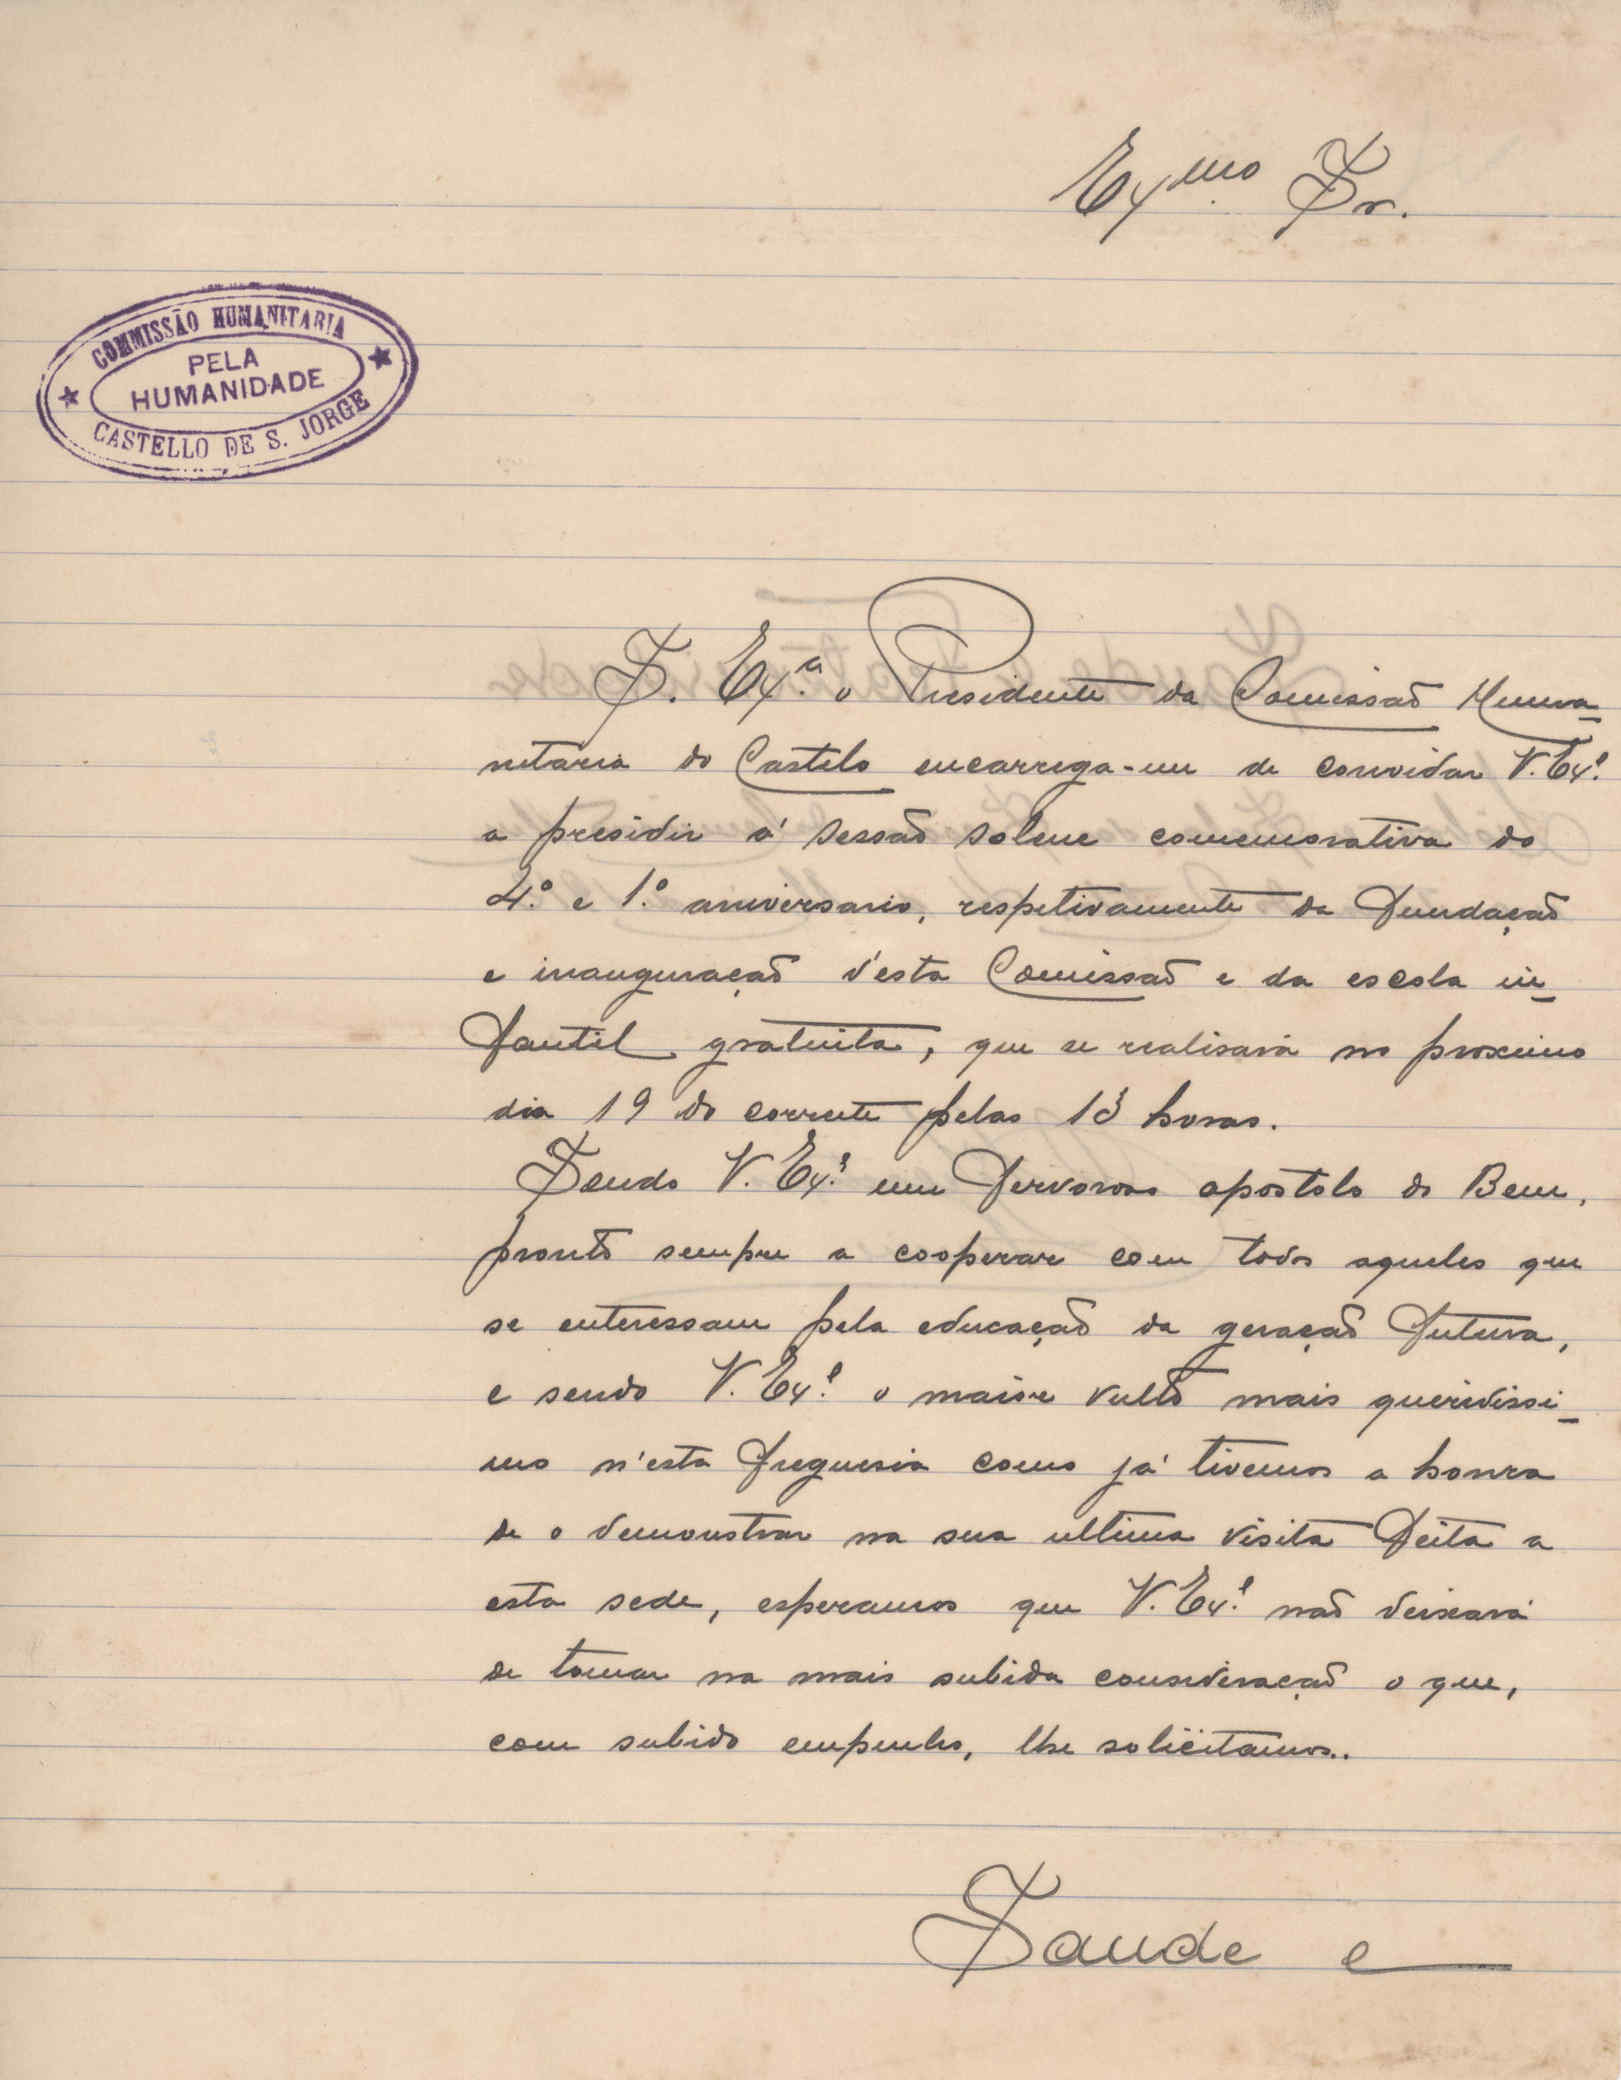 Ex.mo Sr.
COMMISSÃO HUMANITARIA
PELA
HUMANIDADE
CASTELLO DE S. JORGE
S. Ex.ª o Presidente da Comissão Huma-
nitaria do Castelo encarrega-me de convidar V. Ex.ª
a presidir á sessão solene comemorativa do
4.º e 1.º aniversario, respetivamente da fundação
e inauguração d'esta Comissão e da escola in-
fantil gratuita, que se realisará no proximo
dia 19 do corrente pelas 13 horas.
Sendo V. Ex.ª um fervoroso apostolo do Bem,
pronto sempre a cooperar com todos aqueles que
se enteressam pela educação da geração futura,
e sendo V. Ex.ª o maior vulto mais queridissi-
mo n'esta freguesia como já tivemos a honra
de o demonstrar na sua ultima visita feita a
esta sede, esperamos que V. Ex.ª não deixará
de tomar na mais subida consideração o que,
com subido empenho, lhe solicitamos..
Saude e